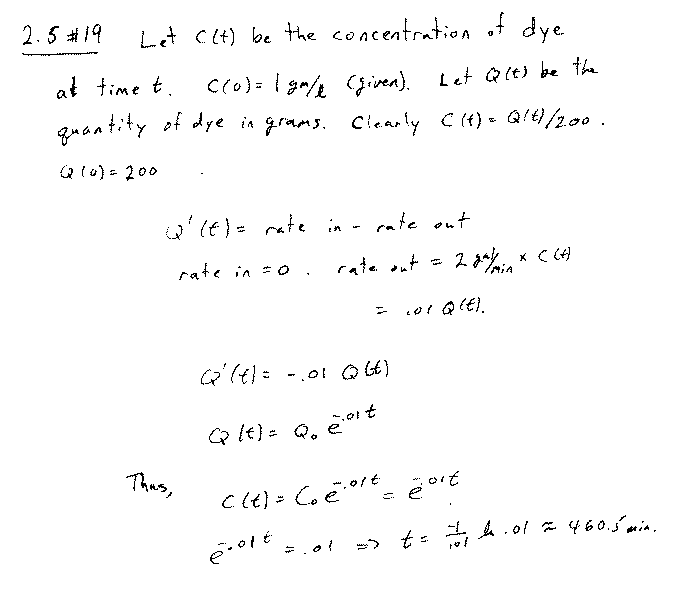 2.5 #19 Let C(t) be the concentration of dye
at time t. C(0) = 1 gm/l (given). Let Q(t) be the
quantity of dye in grams. Clearly C(t) = Q(t)/200.
Q(0) = 200
Q'(t) = rate in - rate out
rate in = 0. rate out = 2 gal/min × C(t)
= .01 Q(t).
Q'(t) = -.01 Q(t)
Q(t) = Q₀ e^-.01t
Thus,
C(t) = C₀ e^-.01t = e^-.01t.
e^-.01t = .01 => t = -1/.01 ln .01 ≈ 460.5 min.